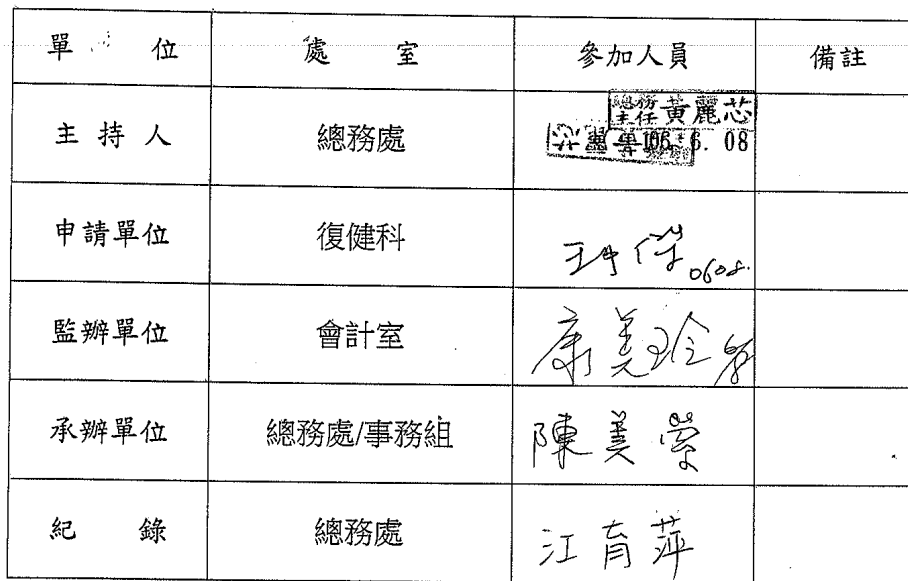 單 位 處 室 參加人員 備註
主 持 人 總務處 總務主任 黃麗芯 106. 6. 08
申請單位 復健科 0608.
監辦單位 會計室 康美玲
承辦單位 總務處/事務組 陳美瑩
紀 錄 總務處 江育萍